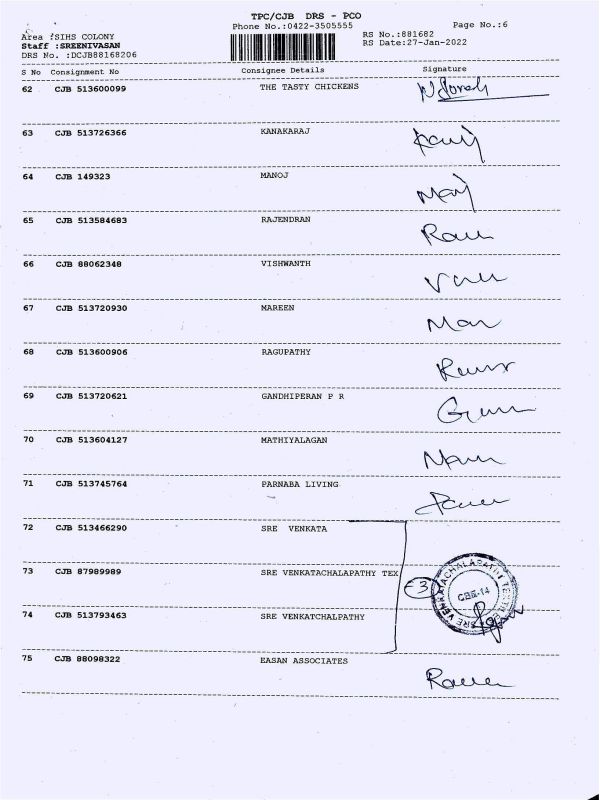 TPC/CJB DRS - PCO
Phone No.:0422-3505555 Page No.:6
Area :SIHS COLONY RS No.:881682
Staff :SREENIVASAN RS Date:27-Jan-2022
DRS No. :DCJB88168206
S No Consignment No Consignee Details Signature
62 CJB 513600099 THE TASTY CHICKENS
63 CJB 513726366 KANAKARAJ
64 CJB 149323 MANOJ
65 CJB 513584683 RAJENDRAN
66 CJB 88062348 VISHWANTH
67 CJB 513720930 MAREEN
68 CJB 513600906 RAGUPATHY
69 CJB 513720621 GANDHIPERAN P R
70 CJB 513604127 MATHIYALAGAN
71 CJB 513745764 PARNABA LIVING
72 CJB 513466290 SRE VENKATA
73 CJB 87989989 SRE VENKATACHALAPATHY TEX
3
SRE VENKATACHALAPATHY
CBE-14
74 CJB 513793463 SRE VENKATCHALPATHY
75 CJB 88098322 EASAN ASSOCIATES